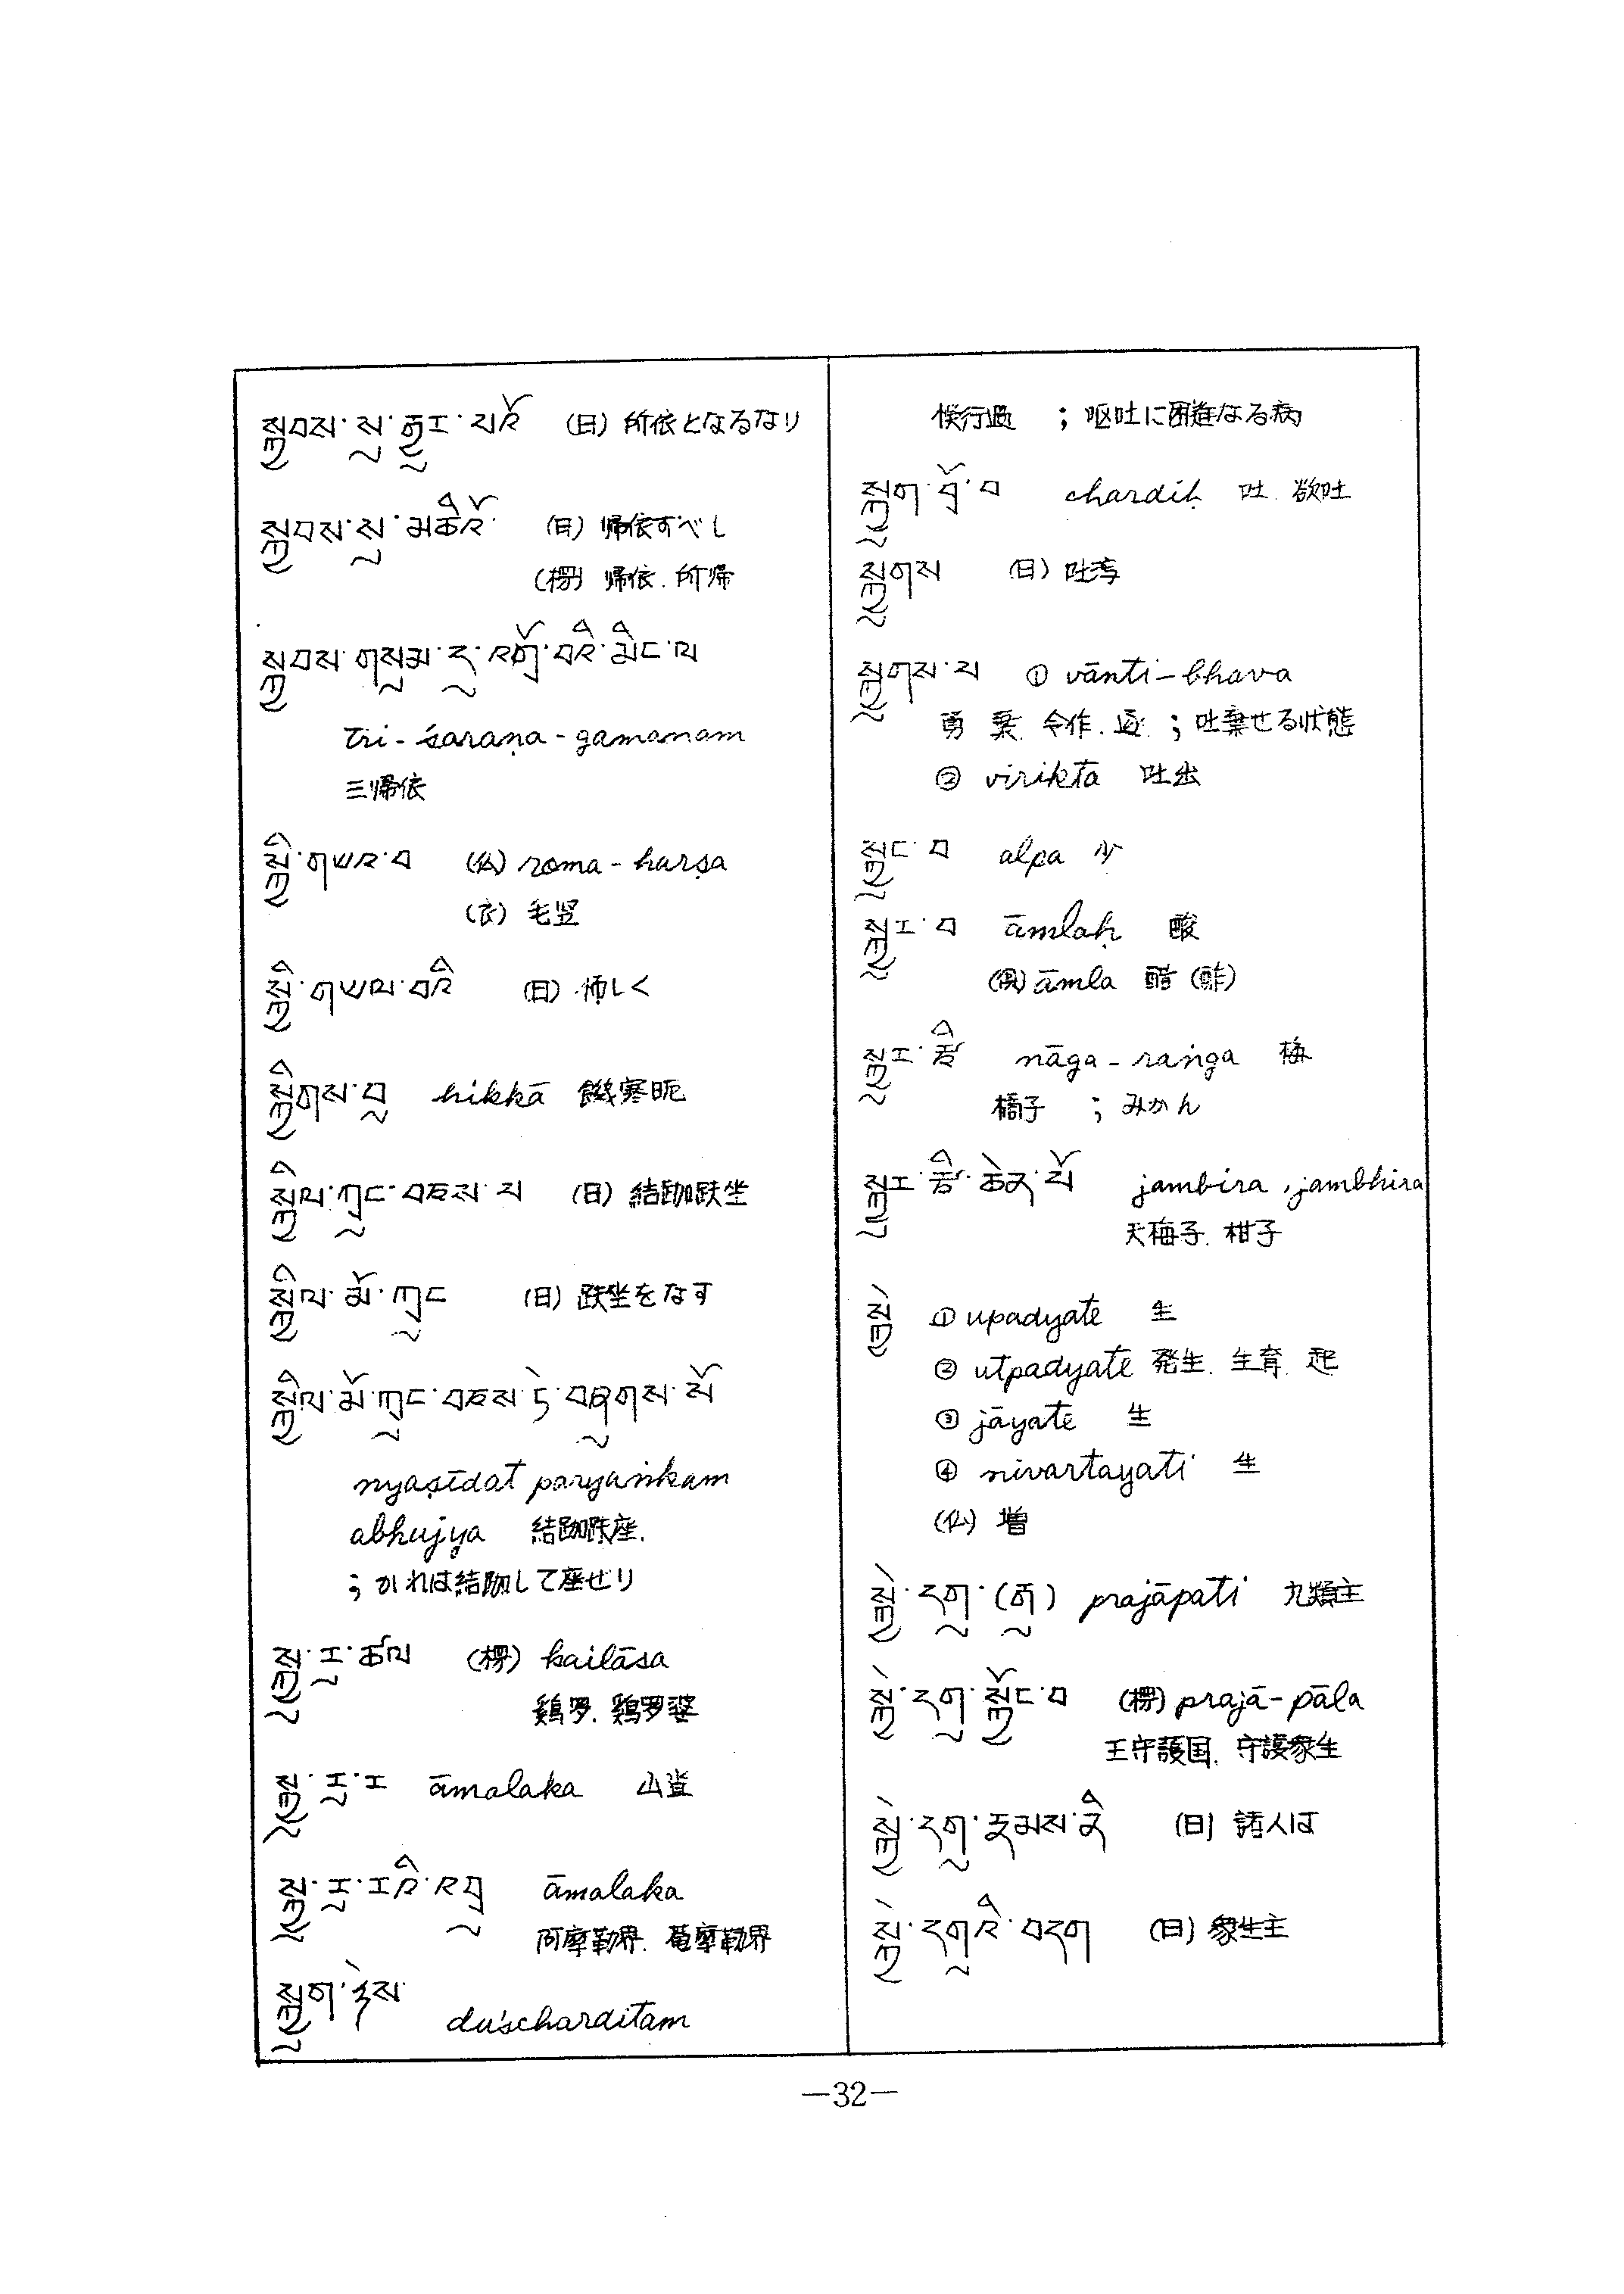 སྐྱབས་སུ་གྱུར་པའོ (日) 所依となるなり
སྐྱབས་སུ་མཆིའོ (日) 帰依すべし
(楞) 帰依. 所帰
སྐྱབས་གསུམ་དུ་འགྲོ་བའི་མིང་ལ
tri-śaraṇa-gamanam
三帰依
སྐྱི་གཡའ་བ (仏) roma-harṣa
(衣) 毛竖
སྐྱི་གཡལ་བའི (日) 怖しく
སྐྱིགས་བུ hikkā 饑寒昵
སྐྱིལ་ཀྲུང་བཅས་པ (日) 結跏趺坐
སྐྱིལ་མོ་ཀྲུང (日) 趺坐をなす
སྐྱིལ་མོ་ཀྲུང་བཅས་ཏེ་བཞུགས་སོ
nyaṣīdat paryaṅkam
abhujya 結跏趺座.
; かれは結跏して座せり
སྐྱུ་རུ་ཚལ (楞) kailāsa
鷄罗. 鷄罗婆
སྐྱུ་རུ་ར āmalaka 山
སྐྱུ་རུ་རའི་འབྲུ āmalaka
阿摩勒界. 菴摩勒界
སྐྱུག་རྗེས་
duścharditam
; 呕吐に困難なる病
སྐྱུག་བྲོ་བ chardiḥ 吐. 欲吐
སྐྱུགས (日) 吐
སྐྱུགས་པ ① vānti-bhava
勇 棄 令作. 逐. ; 吐棄せる状態
② virikta 吐出
སྐྱུང་བ alpa 少
སྐྱུར་བ āmlaḥ 酸
āmla 醋 (酢)
སྐྱུར་ནི nāga-raṅga 梅
橘子 ; みかん
jambira, jambhira
天梅子. 柑子
སྐྱེ ① upadyate 生
② utpadyate 発生. 生育. 起
③ jāyate 生
④ nivartayati 生
(仏) 増
སྐྱེ་དགུ་(རྒུ) prajāpati 九類主
སྐྱེ་དགུ་སྐྱོང་བ (楞) prajā-pāla
王守護国. 守護衆生
སྐྱེ་དགུ་རྣམས་ནི (日) 諸人は
སྐྱེ་དགུའི་བདག (日) 衆生主
—32—